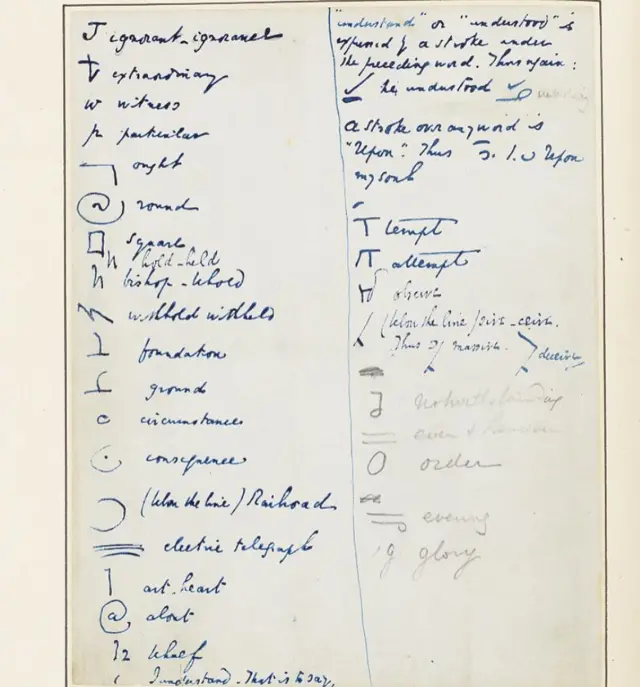 ignorant - ignorance
extraordinary
w witness
particular
ought
round
square
hold - held
bishop - behold
withhold withheld
foundation
ground
circumstances
consequence
(below the line) Railroad
electric telegraph
art - heart
@ about
behalf
I understand - That is to say,
"understand" or "understood" is
expressed by a stroke under
the preceding word. Thus again:
he, understood
a stroke over any word is
"Upon". Thus Upon
my soul
tempt
attempt
observe
(below the line) sive - ceive.
Thus massive. deceive
notwithstanding
even
order
evening
g glory